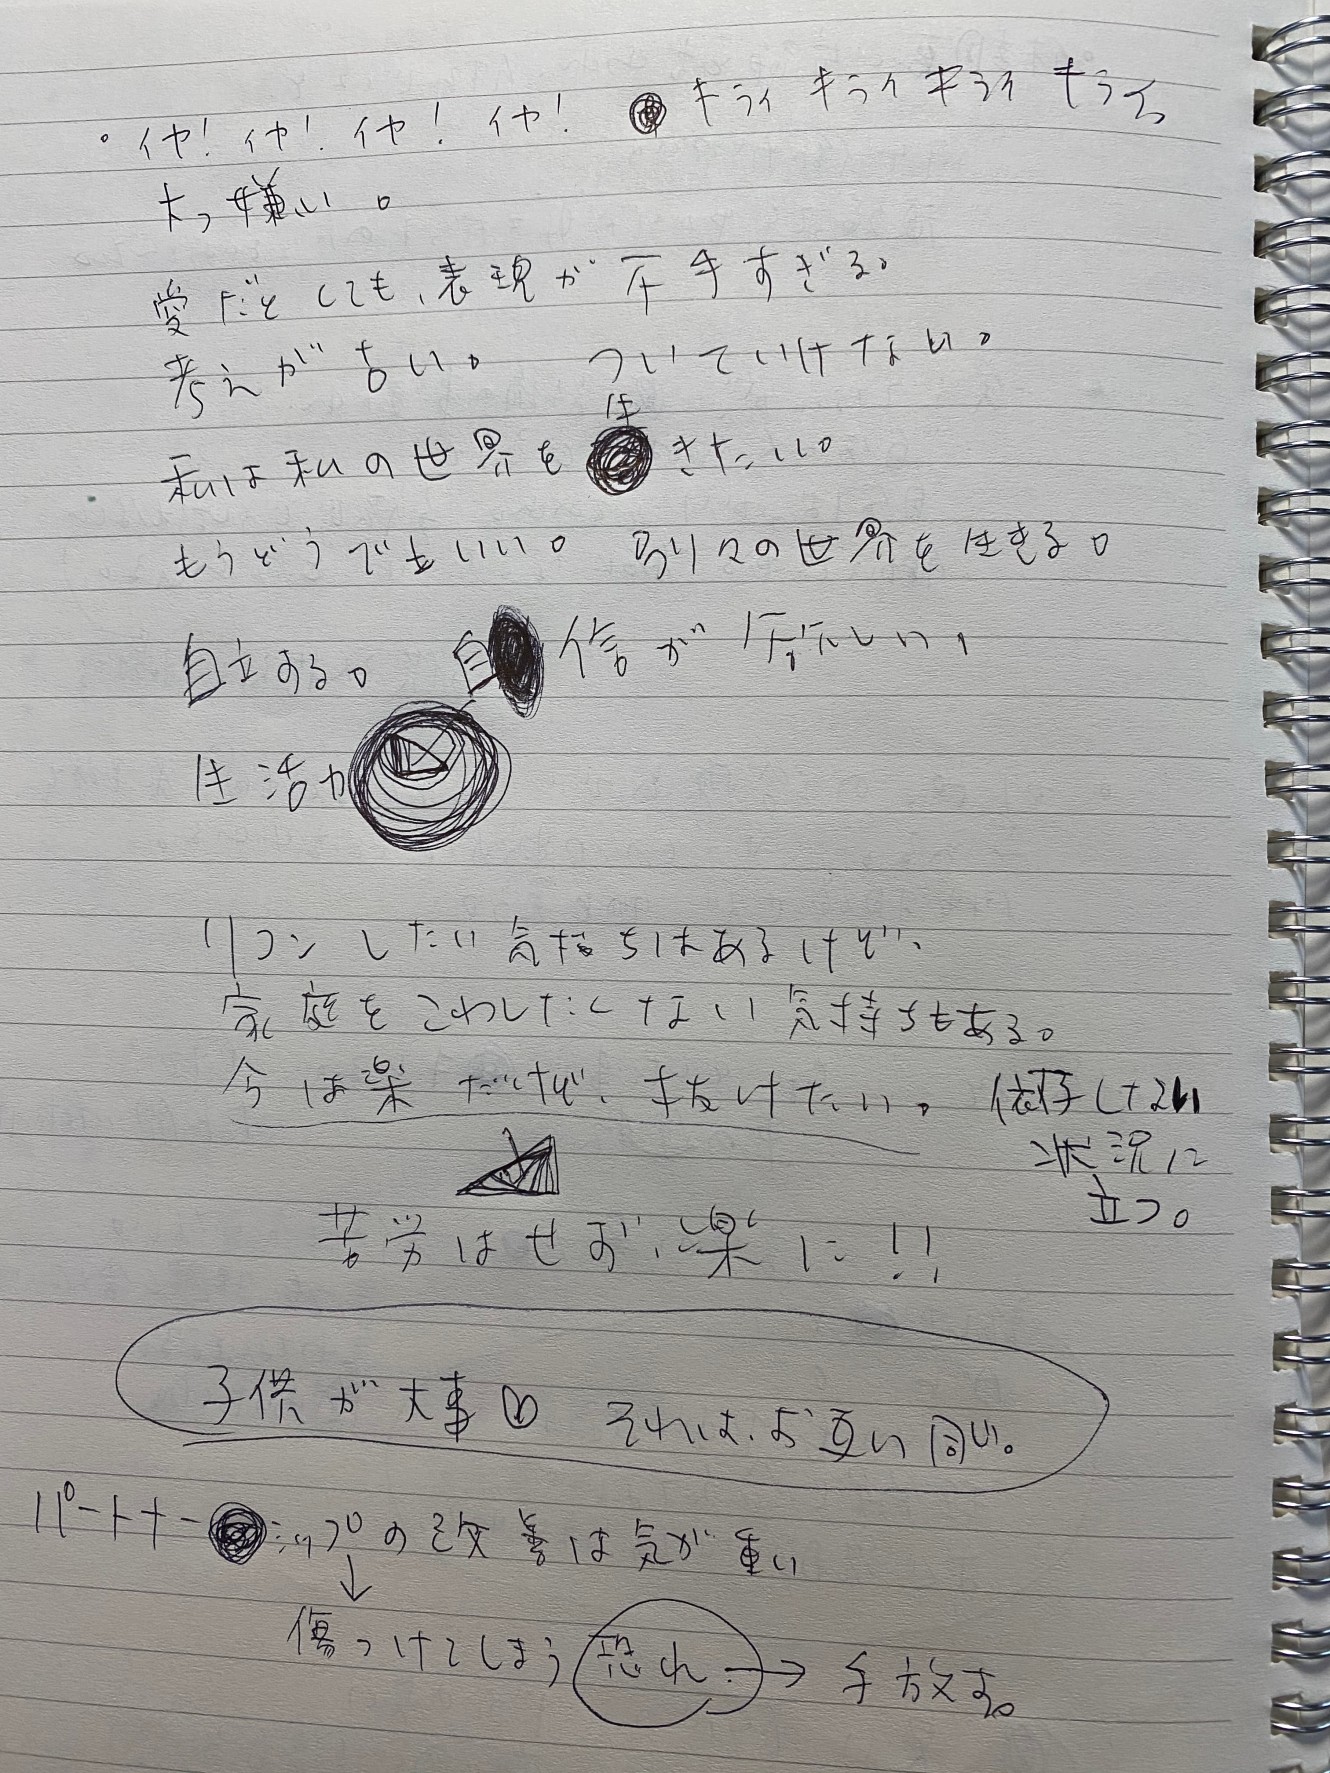 ・イヤ! イヤ! イヤ! イヤ! キライ キライ キライ キライ
大っ嫌い。
愛だとしても、表現が下手すぎる。
考えが古い。 ついていけない。
私は私の世界を生きたい。
もうどうでもいい。 別々の世界を生きる。
自立する。 自信が欲しい。
生活力
リコンしたい気持ちはあるけど、
家庭をこわしたくない気持ちもある。
今は楽だけど、抜けたい。
依存しない
状況に
立つ。
苦労はせず、楽に!!
子供が大事♡ それは、お互い同じ。
パートナーシップの改善は気が重い
↓
傷つけてしまう恐れ→手放す。